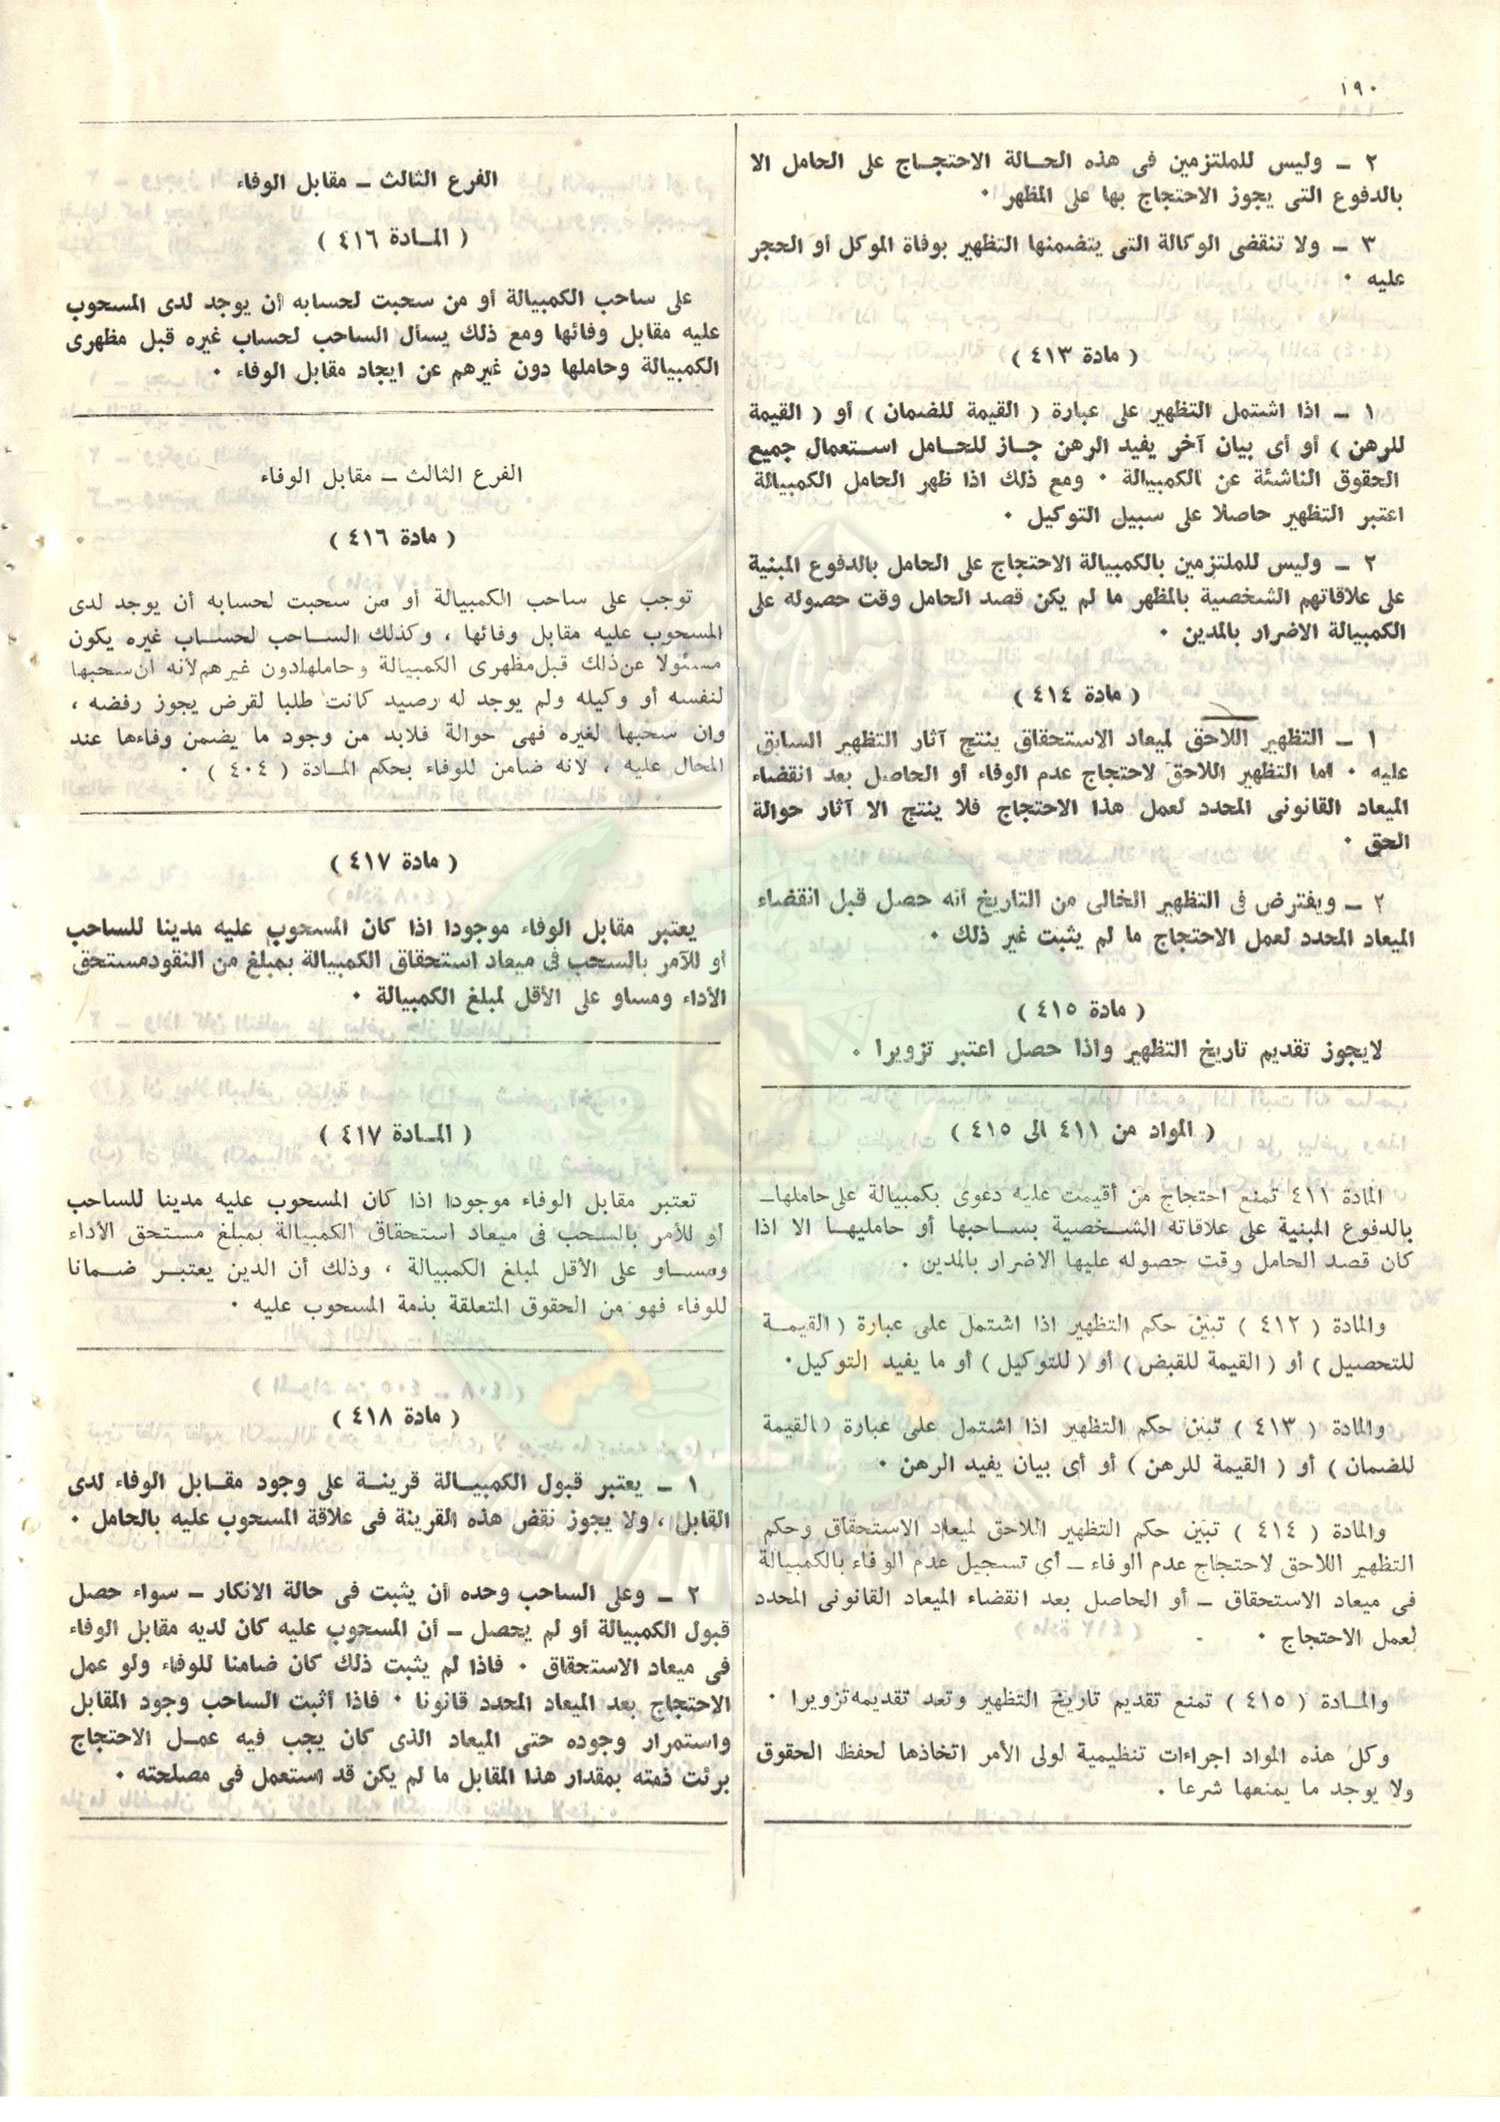 ١٩٠
٢ ـ وليس للملتزمين فى هذه الحـالة الاحتجـاج على الحامل الا
بالدفوع التى يجوز الاحتجاج بها على المظهر ٠
٣ ـ ولا تنقضى الوكالة التى يتضمنها التظهير بوفاة الموكل أو الحجر
عليه ٠
( مادة ٤١٣ )
١ ـ اذا اشتمل التظهير على عبارة ( القيمة للضمان ) أو ( القيمة
للرهن ) أو أى بيان آخر يفيد الرهن جـاز للحامل استعمال جميع
الحقوق الناشئة عن الكمبيالة ٠ ومع ذلك اذا ظهر الحامل الكمبيالة
اعتبر التظهير حاصلا على سبيل التوكيل ٠
٢ ـ وليس للملتزمين بالكمبيالة الاحتجاج على الحامل بالدفوع المبنية
على علاقاتهم الشخصية بالمظهر ما لم يكن قصد الحامل وقت حصوله على
الكمبيالة الاضرار بالمدين ٠
( مادة ٤١٤ )
١ ـ التظهير اللاحق لميعاد الاستحقاق ينتج آثار التظهير السابق
عليه ٠ اما التظهير اللاحق لاحتجاج عدم الوفاء أو الحاصل بعد انقضاء
الميعاد القانونى المحدد لعمل هذا الاحتجاج فلا ينتج الا آثار حوالة
الحق ٠
٢ ـ ويفترض فى التظهير الخالى من التاريخ أنه حصل قبل انقضاء
الميعاد المحدد لعمل الاحتجاج ما لم يثبت غير ذلك ٠
( مادة ٤١٥ )
لايجوز تقديم تاريخ التظهير واذا حصل اعتبر تزويرا ٠
( المواد من ٤١١ الى ٤١٥ )
المادة ٤١١ تمنع احتجاج من أقيمت عليه دعوى بكمبيالة على حاملها ـ
بالدفوع المبنية على علاقاته الشخصية بساحبها أو حامليها الا اذا
كان قصد الحامل وقت حصوله عليها الاضرار بالمدين ٠
والمادة ( ٤١٢ ) تبين حكم التظهير اذا اشتمل على عبارة ( القيمـة
للتحصيل ) أو ( القيمة للقبض ) أو ( للتوكيل ) أو ما يفيد التوكيل٠
والمادة ( ٤١٣ ) تبين حكم التظهير اذا اشتمل على عبارة ( القيمة
للضمان ) أو ( القيمة للرهن ) أو أى بيان يفيد الرهن ٠
والمادة ( ٤١٤ ) تبين حكم التظهير اللاحق لميعاد الاستحقاق وحكم
التظهير اللاحق لاحتجاج عدم الوفاء ـ أى تسجيل عدم الوفاء بالكمبيالة
فى ميعاد الاستحقاق ـ أو الحاصل بعد انقضاء الميعاد القانونى المحدد
لعمل الاحتجاج ٠
والمـادة ( ٤١٥ ) تمنع تقديم تاريخ التظهير وتعد تقديمه تزويرا ٠
وكل هذه المواد اجراءات تنظيمية لولى الأمر اتخاذها لحفظ الحقوق
ولا يوجد ما يمنعها شرعا ٠
الفرع الثالث ـ مقابل الوفاء
( المـادة ٤١٦ )
على ساحب الكمبيالة أو من سحبت لحسابه أن يوجد لدى المسحوب
عليه مقابل وفائها ومع ذلك يسأل الساحب لحساب غيره قبل مظهرى
الكمبيالة وحاملها دون غيرهم عن ايجاد مقابل الوفاء ٠
الفرع الثالث ـ مقابل الوفاء
( مادة ٤١٦ )
توجب على ساحب الكمبيالة أو من سحبت لحسابه أن يوجد لدى
المسحوب عليه مقابل وفائها ، وكذلك الساحب لحساب غيره يكون
مسئولا عن ذلك قبل مظهرى الكمبيالة وحاملها دون غيرهم لانه ان سحبها
لنفسه أو وكيله ولم يوجد له رصيد كانت طلبا لقرض يجوز رفضه ،
وان سحبها لغيره فهى حوالة فلابد من وجود ما يضمن وفاءها عند
المحال عليه ، لانه ضامن للوفاء بحكم المـادة ( ٤٠٤ ) ٠
( مادة ٤١٧ )
يعتبر مقابل الوفاء موجودا اذا كان المسحوب عليه مدينا للساحب
أو للآمر بالسحب فى ميعاد استحقاق الكمبيالة بمبلغ من النقود مستحق
الأداء ومساو على الأقل لمبلغ الكمبيالة ٠
( المـادة ٤١٧ )
تعتبر مقابل الوفاء موجودا اذا كان المسحوب عليه مدينا للساحب
أو للأمر بالسحب فى ميعاد استحقاق الكمبيالة بمبلغ مستحق الأداء
ومساو على الأقل لمبلغ الكمبيالة ، وذلك أن الدين يعتبر ضمانا
للوفاء فهو من الحقوق المتعلقة بذمة المسحوب عليه ٠
( مادة ٤١٨ )
١ ـ يعتبر قبول الكمبيالة قرينة على وجود مقابل الوفاء لدى
القابل ، ولا يجوز نقض هذه القرينة فى علاقة المسحوب عليه بالحامل ٠
٢ ـ وعلى الساحب وحده أن يثبت فى حالة الانكار ـ سواء حصل
قبول الكمبيالة أو لم يحصل ـ أن المسحوب عليه كان لديه مقابل الوفاء
فى ميعاد الاستحقاق ٠ فاذا لم يثبت ذلك كان ضامنا للوفاء ولو عمل
الاحتجاج بعد الميعاد المحدد قانونا ٠ فاذا أثبت الساحب وجود المقابل
واستمرار وجوده حتى الميعاد الذى كان يجب فيه عمـل الاحتجاج
برئت ذمته بمقدار هذا المقابل ما لم يكن قد استعمل فى مصلحته ٠